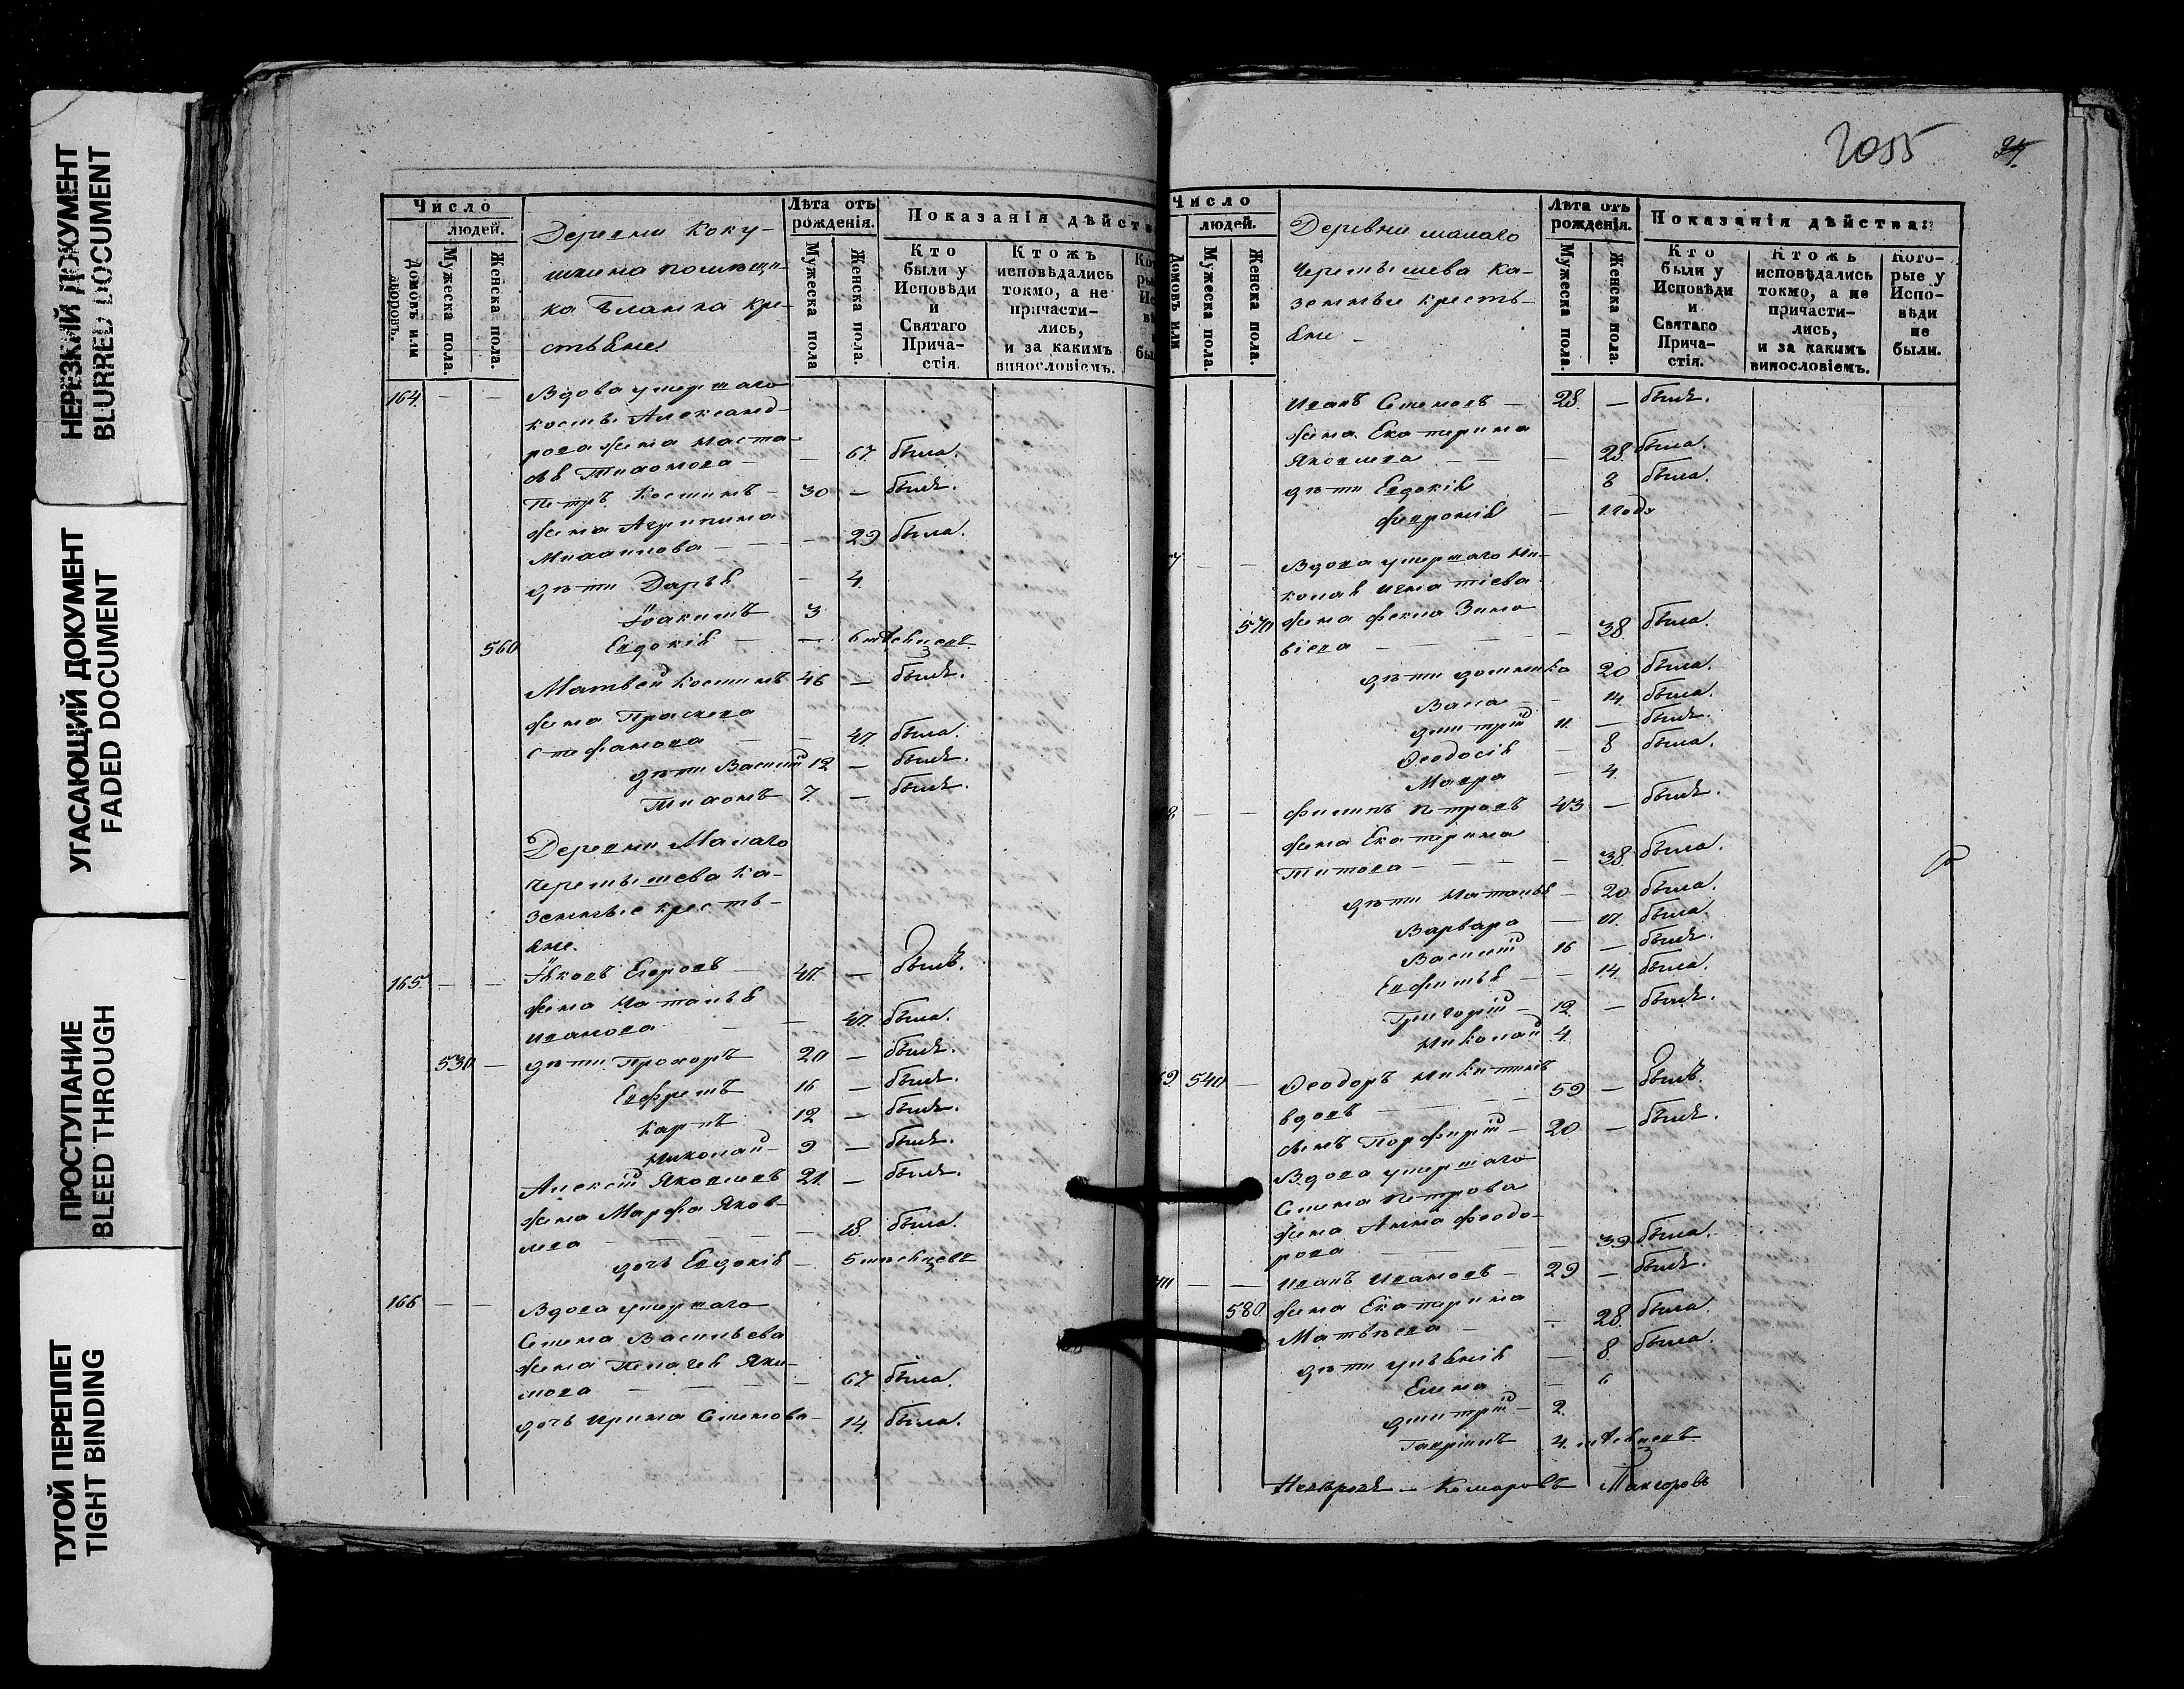 НЕРЕЗКИЙ ДОКУМЕНТ
BLURRED DOCUMENT
УГАСАЮЩИЙ ДОКУМЕНТ
FADED DOCUMENT
ПРОСТУПАНИЕ
BLEED THROUGH
ТУГОЙ ПЕРЕПЛЕТ
TIGHT BINDING
Число
людей.
домовъ или дворовъ.
Мужеска пола.
Женска пола.
Деревни Коку-
шкина помѣщи-
ка Бланка кре-
стьяне
Лѣта отъ рожденія.
Мужеска пола
Женска пола.
Показанія дѣйств
Кто были у Исповѣди и Святаго Прича- стія.
Ктожъ исповѣдались токмо, а не причасти- лись, и за какимъ винословіемъ.
164 — — Вдова умершаго
Косьмы Александ-
рова жена Наста-
сья Тихонова — — 67. была.
Петръ Косминъ — 30 — былъ.
жена Агрипина
Михаилова — — — 29 была.
дѣти Дарья — 4.
Іоакимъ 3
560 Евдокія — — 6 мѣсяцевъ.
Матвѣй Косминъ 46 — былъ.
жена Прасковья
Стефанова — — 47. была.
дѣти Василій 12 — былъ.
Тихонъ 7. — былъ.
Деревни Малаго
Черемышева ка-
зенные кресть-
яне.
165. — — Яковъ Егоровъ — 47. — былъ.
жена Наталья
Иванова — — 47. была.
530 — дѣти Прохоръ 20 — былъ.
Ефремъ 16 — былъ.
Карпъ 12 — былъ.
Николай — 9 — былъ.
Алексѣй Яковлевъ 21. — былъ.
жена Марфа Яков-
лева — — — — 18. была.
дочь Евдокія — 5 мѣсяцевъ
166 — — Вдова умершаго
Семена Васильева
жена Пелагея Яки-
мова — — — — 67. была.
дочь Ирина Семенова — 14. была.
2055
Число
людей.
домовъ или
Мужеска пола.
Женска пола.
Деревни малаго
Черемышева ка-
зенные кресть-
яне —
Лѣта отъ рожденія.
Мужеска пола.
Женска пола.
Показанія дѣйства:
Кто были у Исповѣди и Святаго Прича- стія.
Ктожъ исповѣдались токмо, а не причасти- лись, и за какимъ винословіемъ.
Кото- рые у Испо- вѣди не были.
Иванъ Семеновъ — 28. — былъ.
жена Екатерина
Яковлева — — — 28. была.
дѣти Евдокія 8 была.
Февронія — 1 годъ
7 — — Вдова умершаго Ни-
колая Игнатіева
570 жена Фекла Зино-
віева — — — 38. была.
дѣти Домника 20 была.
Васса — — 14. была.
Дмитрій 11. — былъ.
Феодосія — 8 была.
Мавра — 4.
8 — — Филипъ Петровъ 43 — былъ.
жена Екатерина
Титова — — — — 38. была.
дѣти Наталья — 20 была.
Варвара — 17. была.
Василій 16 — былъ.
Евфимья — — 14. была.
Григорій — 12. — былъ.
Николай 4.
69 540 — Феодоръ Никитинъ
вдовъ — — — — 59 — былъ.
сынъ Порфирій — 20 — былъ.
Вдова умершаго
Семена Петрова
жена Анна Феодо-
рова — — — — 39 была.
— — Иванъ Ивановъ — 29 — былъ.
580 жена Екатерина
Матвѣева — — 28. была.
дѣти Ульянія — 8. была.
Елена — 6
Дмитрій — 2.
Гавріилъ 4. мѣсяцевъ.